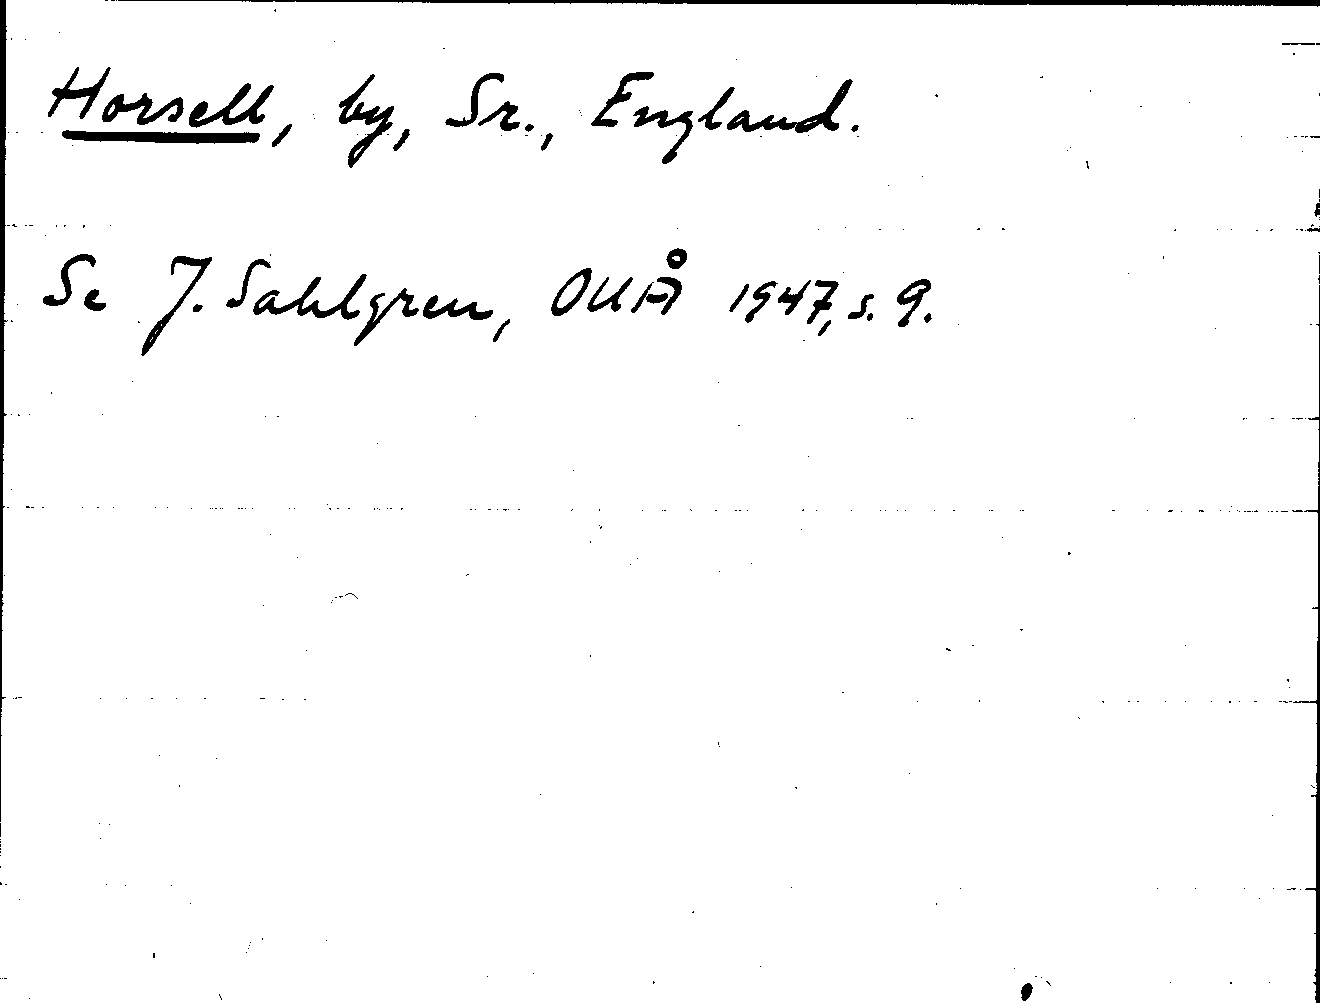 Horsell, by, Sr., England.
Se J. Sahlgren, OUÅ 1947, s. 9.